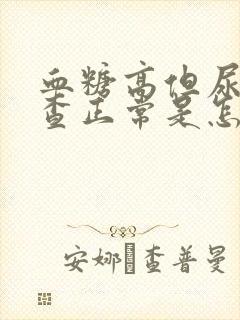 血糖高但尿
查正常是怎
安娜·查普曼